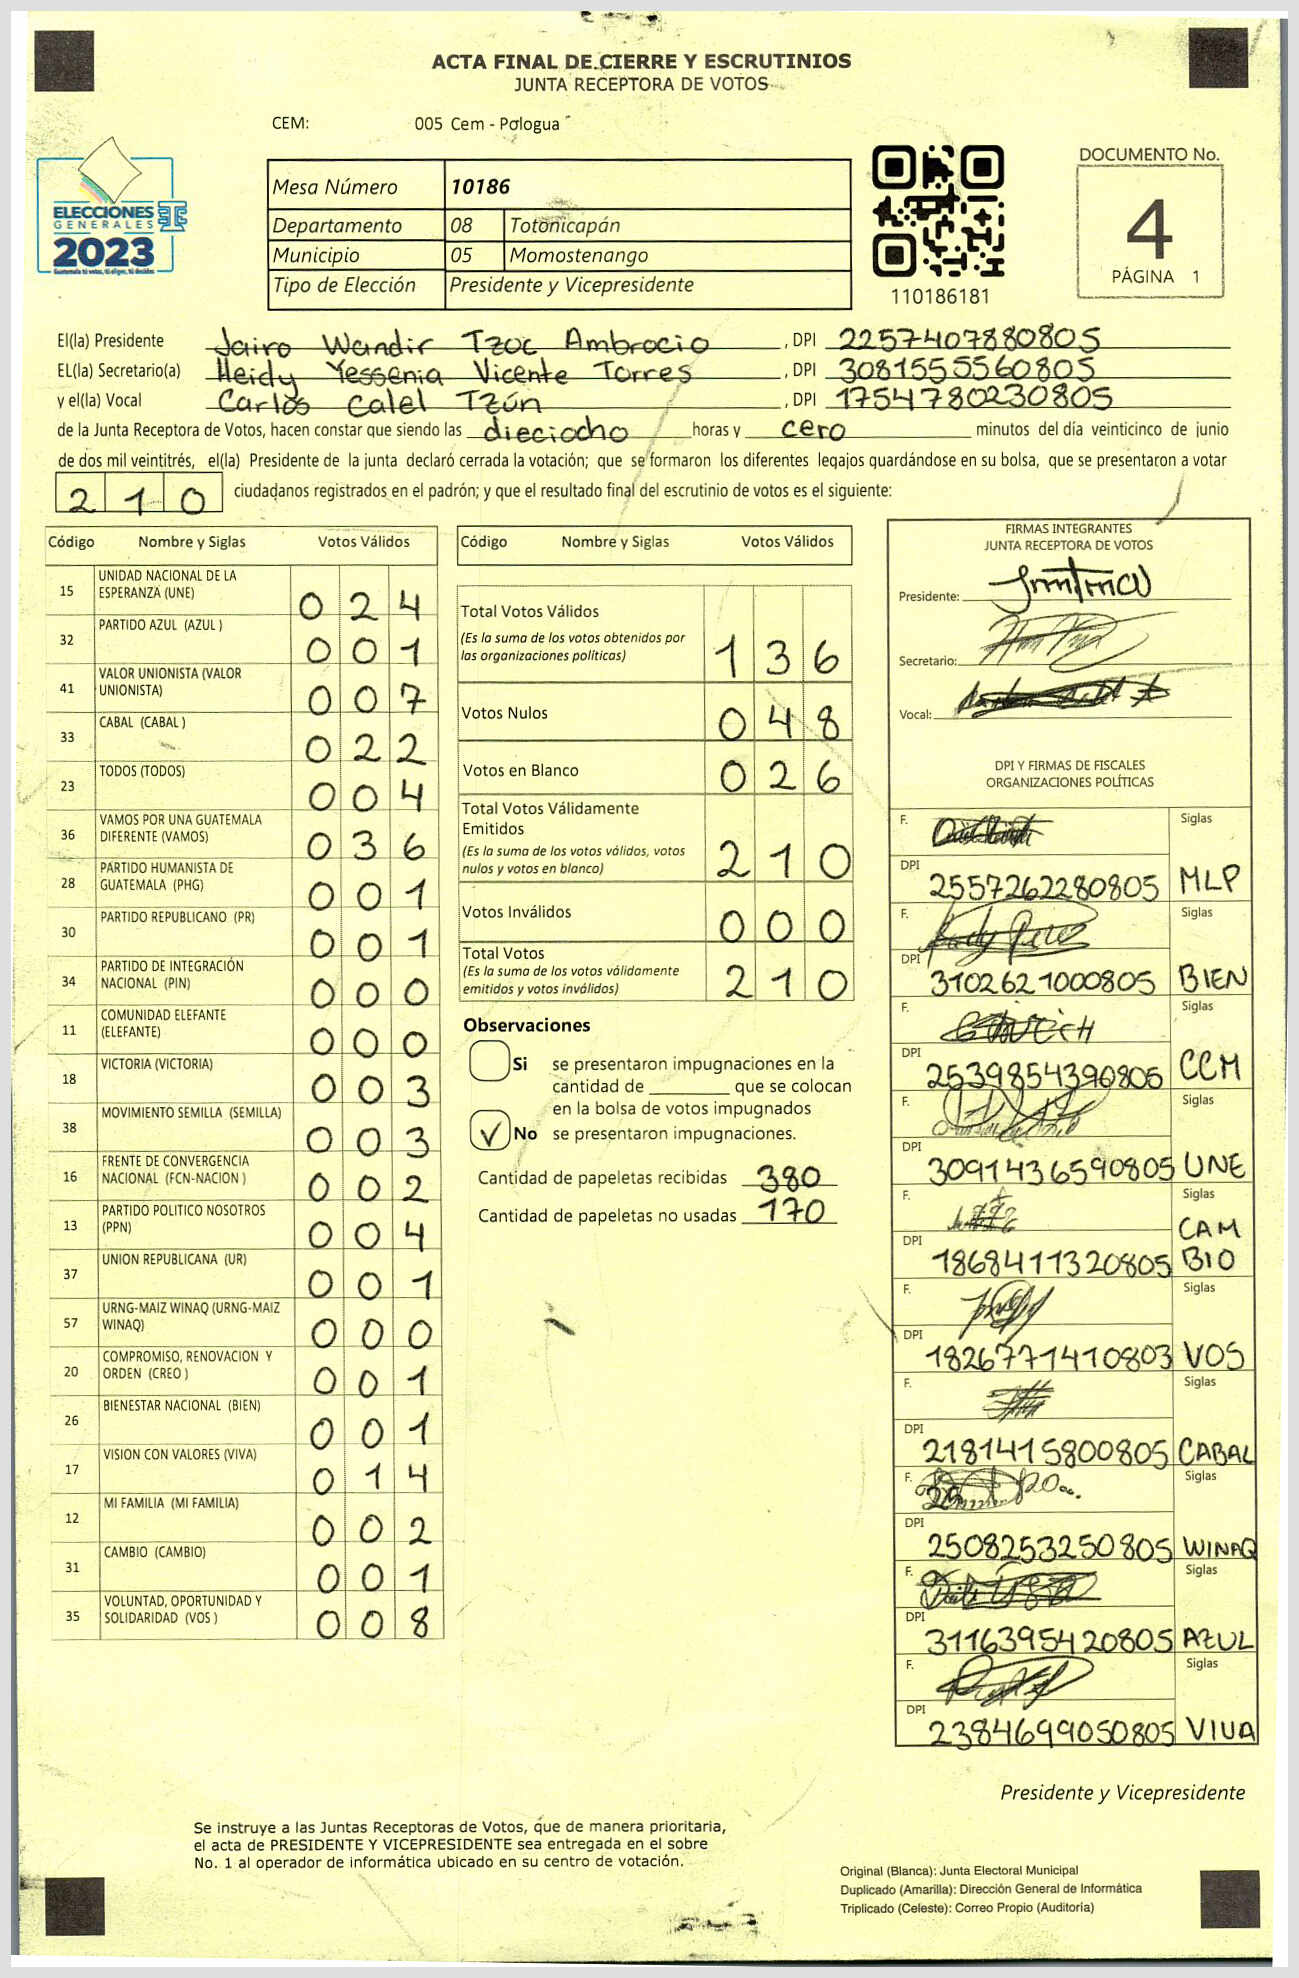 ACTA FINAL DE CIERRE Y ESCRUTINIOS
JUNTA RECEPTORA DE VOTOS
CEM: 005 Cem - Pologua
ELECCIONES
GENERALES
2023
Guatemala tú votas, tú eliges, tú decides
Mesa Número 10186
Departamento 08 Totonicapán
Municipio 05 Momostenango
Tipo de Elección Presidente y Vicepresidente
110186181
DOCUMENTO No.
4
PÁGINA 1
El(la) Presidente Jairo Wandir Tzoc Ambrocio, DPI 2257407880805
EL(la) Secretario(a) Heidy Yessenia Vicente Torres, DPI 3081555560805
y el(la) Vocal Carlos Calel Tzún, DPI 1754780230805
de la Junta Receptora de Votos, hacen constar que siendo las dieciocho horas y cero minutos del día veinticinco de junio
de dos mil veintitrés, el(la) Presidente de la junta declaró cerrada la votación; que se formaron los diferentes legajos guardándose en su bolsa, que se presentaron a votar
210 ciudadanos registrados en el padrón; y que el resultado final del escrutinio de votos es el siguiente:
Código Nombre y Siglas Votos Válidos
15 UNIDAD NACIONAL DE LA ESPERANZA (UNE) 024
32 PARTIDO AZUL (AZUL ) 001
41 VALOR UNIONISTA (VALOR UNIONISTA) 007
33 CABAL (CABAL ) 022
23 TODOS (TODOS) 004
36 VAMOS POR UNA GUATEMALA DIFERENTE (VAMOS) 036
28 PARTIDO HUMANISTA DE GUATEMALA (PHG) 001
30 PARTIDO REPUBLICANO (PR) 001
34 PARTIDO DE INTEGRACIÓN NACIONAL (PIN) 000
11 COMUNIDAD ELEFANTE (ELEFANTE) 000
18 VICTORIA (VICTORIA) 003
38 MOVIMIENTO SEMILLA (SEMILLA) 003
16 FRENTE DE CONVERGENCIA NACIONAL (FCN-NACION ) 002
13 PARTIDO POLITICO NOSOTROS (PPN) 004
37 UNION REPUBLICANA (UR) 001
57 URNG-MAIZ WINAQ (URNG-MAIZ WINAQ) 000
20 COMPROMISO, RENOVACION Y ORDEN (CREO ) 001
26 BIENESTAR NACIONAL (BIEN) 001
17 VISION CON VALORES (VIVA) 014
12 MI FAMILIA (MI FAMILIA) 002
31 CAMBIO (CAMBIO) 001
35 VOLUNTAD, OPORTUNIDAD Y SOLIDARIDAD (VOS ) 008
Código Nombre y Siglas Votos Válidos
Total Votos Válidos
(Es la suma de los votos obtenidos por
las organizaciones políticas) 136
Votos Nulos 048
Votos en Blanco 026
Total Votos Válidamente
Emitidos
(Es la suma de los votos válidos, votos
nulos y votos en blanco) 210
Votos Inválidos 000
Total Votos
(Es la suma de los votos válidamente
emitidos y votos inválidos) 210
Observaciones
Si se presentaron impugnaciones en la
cantidad de ________ que se colocan
en la bolsa de votos impugnados
✓ No se presentaron impugnaciones.
Cantidad de papeletas recibidas 380
Cantidad de papeletas no usadas 170
FIRMAS INTEGRANTES
JUNTA RECEPTORA DE VOTOS
Presidente:
Secretario:
Vocal:
DPI Y FIRMAS DE FISCALES
ORGANIZACIONES POLÍTICAS
F. Siglas
DPI 2557262280805 MLP
F. Siglas
DPI 3102621000805 BIEN
F. Siglas
DPI 2539854390805 CCM
F. Siglas
DPI 3091436590805 UNE
F. Siglas
DPI 1868411320805 CAMBIO
F. Siglas
DPI 1826771410803 VOS
F. Siglas
DPI 2181415800805 CABAL
F. Siglas
DPI 2508253250805 WINAQ
F. Siglas
DPI 3116395420805 AZUL
F. Siglas
DPI 2384699050805 VIVA
Presidente y Vicepresidente
Se instruye a las Juntas Receptoras de Votos, que de manera prioritaria,
el acta de PRESIDENTE Y VICEPRESIDENTE sea entregada en el sobre
No. 1 al operador de informática ubicado en su centro de votación.
Original (Blanca): Junta Electoral Municipal
Duplicado (Amarilla): Dirección General de Informática
Triplicado (Celeste): Correo Propio (Auditoria)